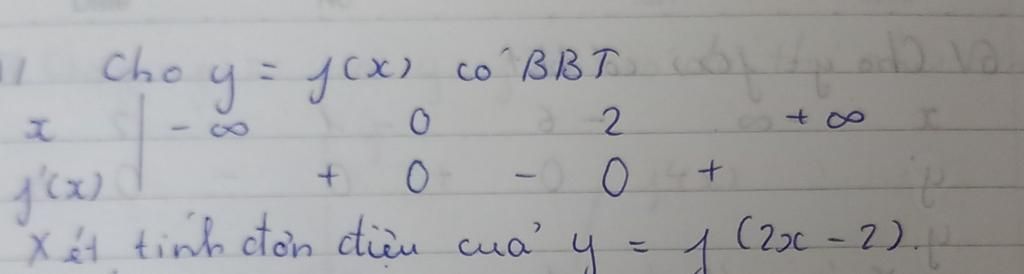 1/ Cho y = f(x) có BBT
x | -∞ 0 2 +∞
f'(x) | + 0 - 0 +
Xét tính đơn điệu của y = f(2x - 2).